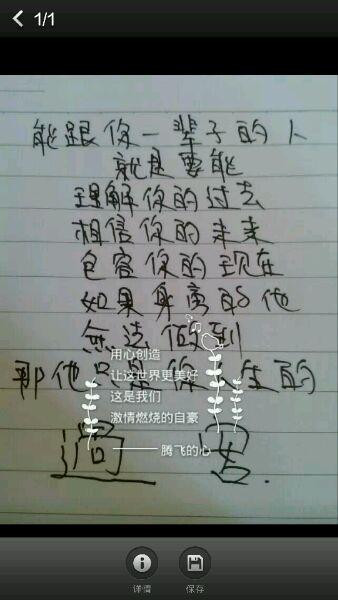 1/1
能跟你一辈子的人
就是要能
理解你的过去
相信你的未来
包容你的现在
如果身离的他
无法做到
那他只是你 生的
用心创造
让这世界更美好
这是我们
激情燃烧的自豪
腾飞的心
过客
详情
保存